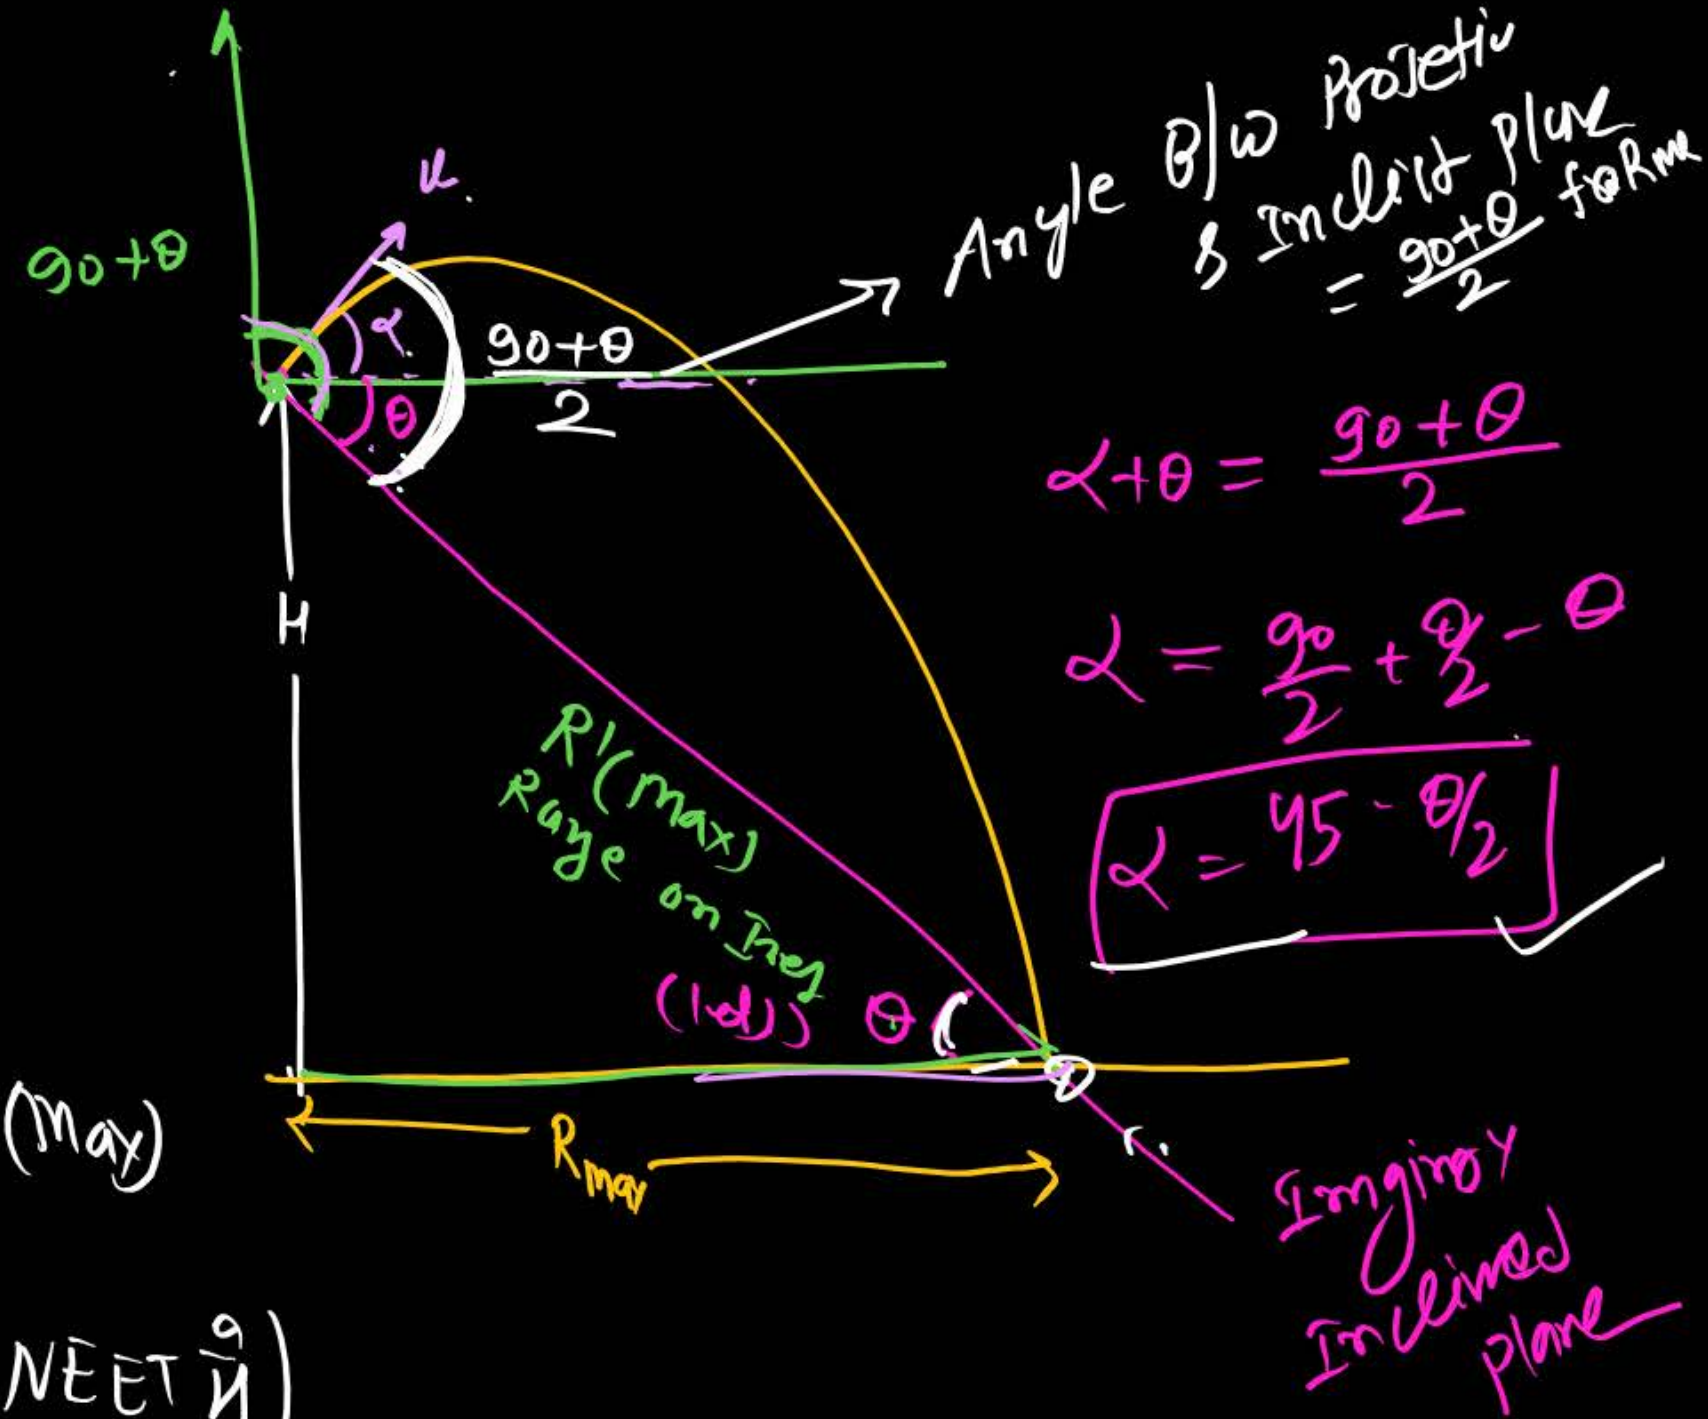 u.
90+θ
α.
θ
90+θ
2
Angle B/w Projetiu
& Inclind Plane
= 90+θ/2 for Rmax
α+θ = 90+θ/2
α = 90/2 + θ/2 - θ
α = 45 - θ/2
H
R'(max)
Range on
θ
Rmax
(max)
Imginoy
Inclined
plane
NEET में)